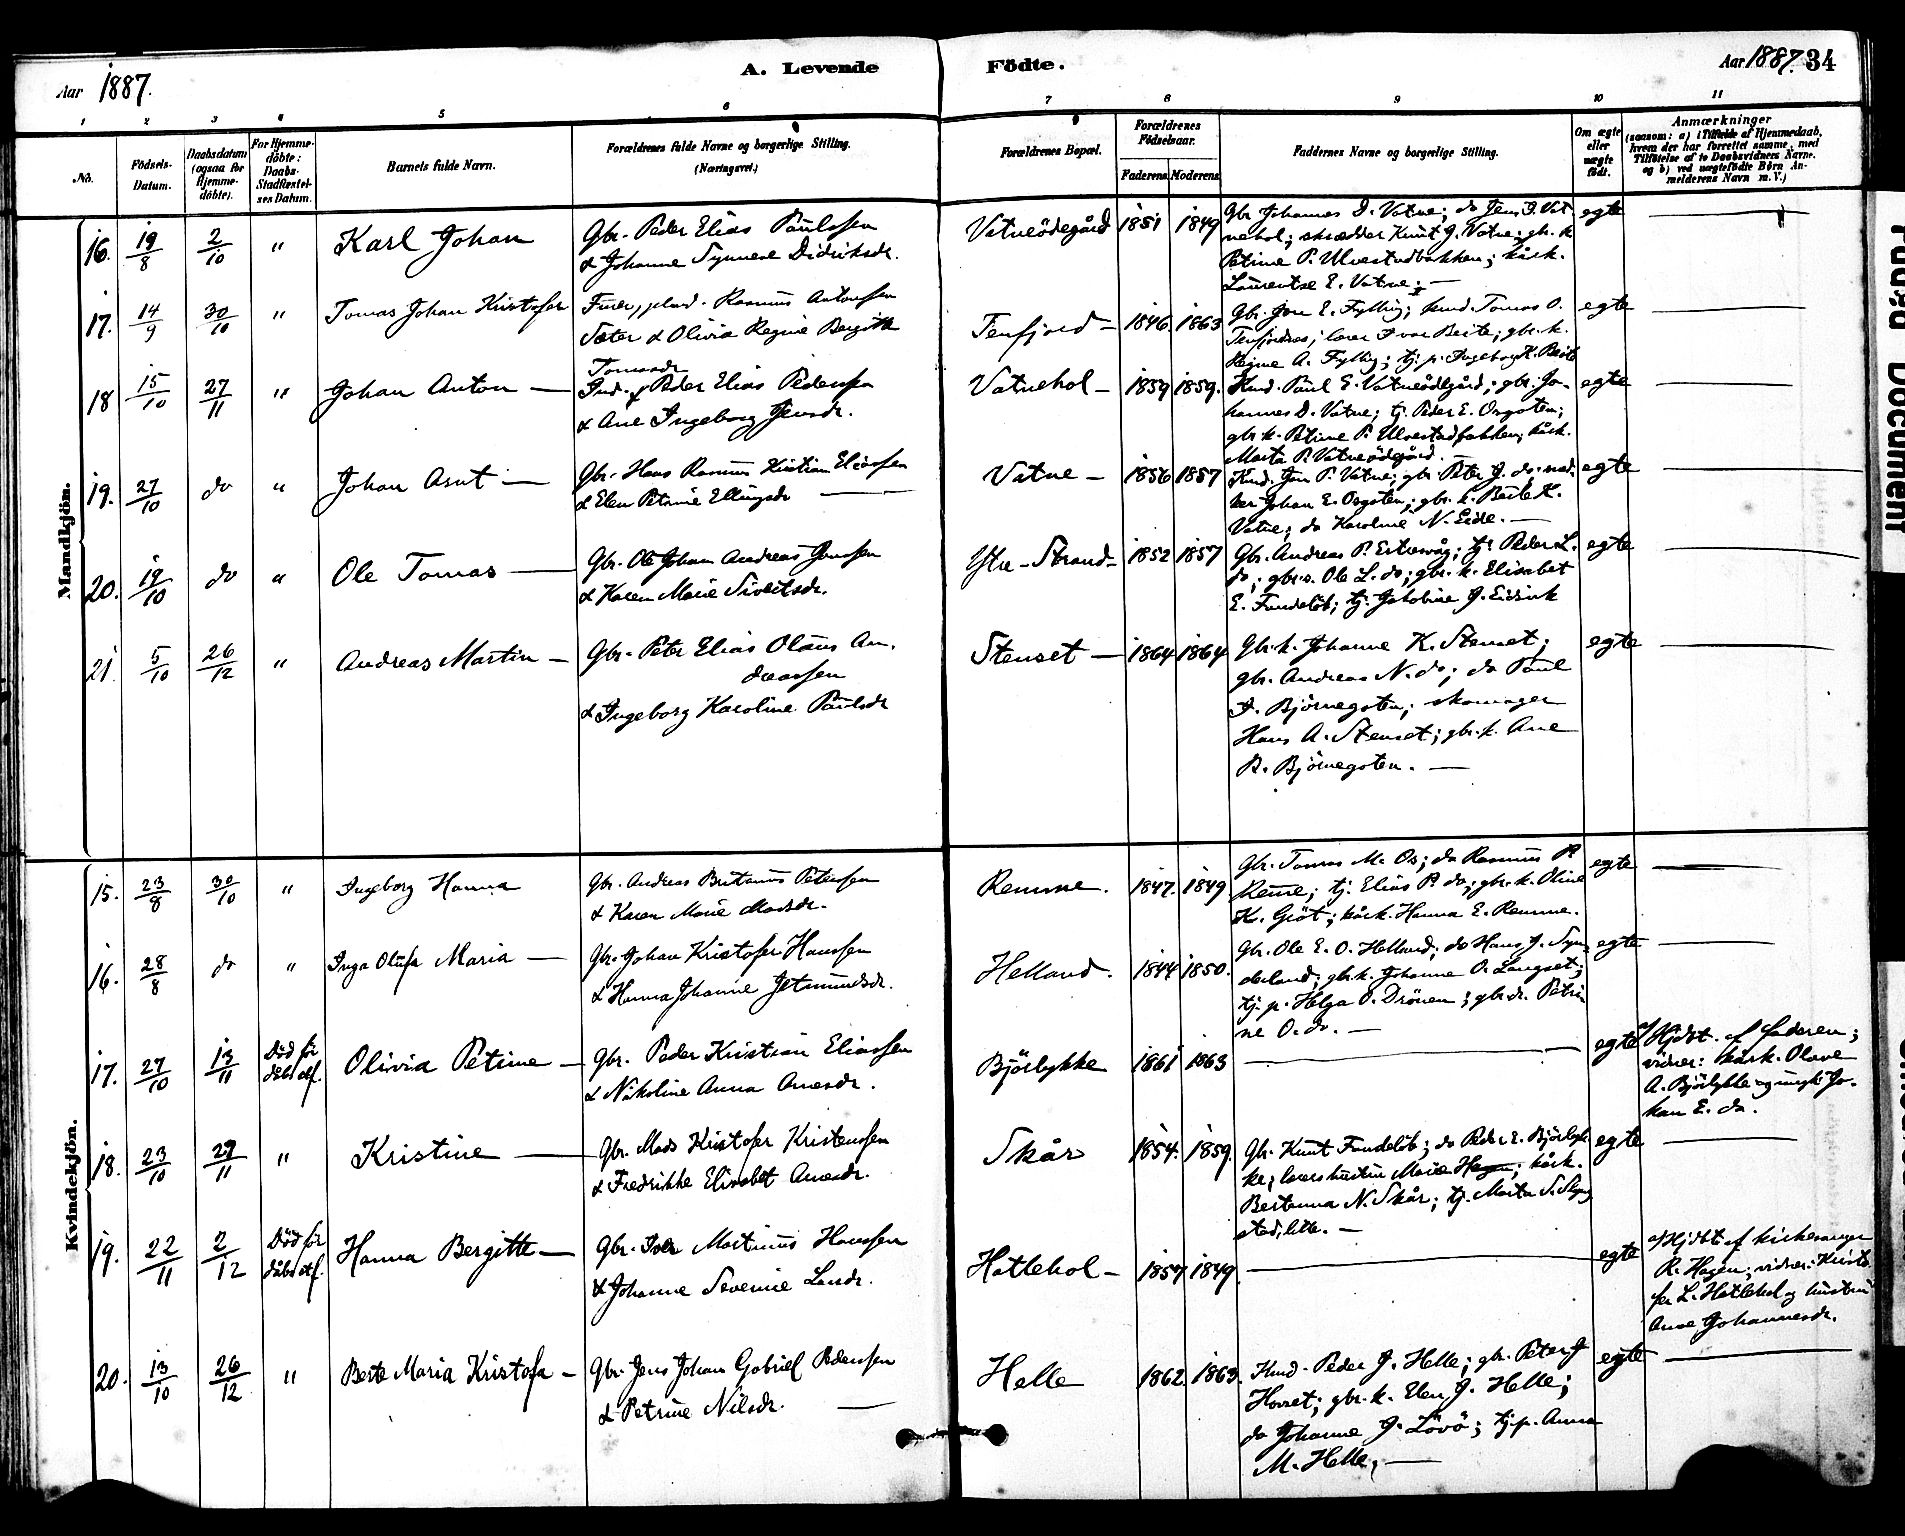 Aar 1887.
A. Levende
Födte.
Aar 1887. 34
1 2 3 4 5 6 7 8 9 10 11
No.
Födsels-Datum.
Daabsdatum (ogsaa for Hjemme-döbte).
For Hjemme-döbte: Daabs-Stadfæstel-ses Datum.
Barnets fulde Navn.
Forældrenes fulde Navne og borgerlige Stilling. (Næringsvei.)
Forældrenes Bopæl.
Forældrenes Födselsaar.
Faderens Moderens
Faddernes Navne og borgerlige Stilling.
Om ægte eller uægte födt.
Anmærkninger
(saasom: a) i Tilfælde af Hjemmedaab, hvem der har forrettet samme, med Tilföielse af to Daabsvidners Navne, og b) ved uægtefödte Börn An-melderens Navn m. V.)
Mandkjön.
16. 19/8 2/10 " Karl Johan
Gbr. Peder Elias Paulssen
& Johanne Synneve Didriksdr.
Vatneödegård 1851 1849
Gbr. Johannes D. Vatne; do Jens P. Vat-
nehol; skrædder Knut J. Vatne; gbr. k.
Petrine P. Ulvestadbakken; kårk.
Laurentse E. Vatne. —
egte
17. 14/9 30/10 " Tomas Johan Kristofer
Rasmus Antonssen
Sæter & Olivia Regine Bergitte
Tomasdr.
Tenfjord — 1846 1863
Gbr. Jon E. Fylling; Tomas O.
Tenfjordnes; lærer Ivar Beite; gbr. k.
Regine A. Fylling; tj. p. Ingeborg K. Beite
egte
18 15/10 27/11 " Johan Anton —
Ind. Peder Elias Pederssen
& Ane Ingeborg Jensdr.
Vatnehol — 1859 1859.
Paul E. Vatneödegård; gbr. Jo-
hannes D. Vatne; tj. Peder E. Orgsten;
gbr. k. Petrine P. Ulvestadbakken; kårk.
Marta P. Vatneödegård. —
egte
19. 27/10 do " Johan Arnt —
Gbr. Hans Rasmus Kristian Eliassen
& Elen Petrine Ellingsdr —
Vatne — 1856 1857
Jon P. Vatne; gbr. Peter J. do;
Johan E. Orgsten; gbr. k. Berte K.
Vatne; do Karoline N. Eide. —
egte
20. 19/10 do " Ole Tomas —
Gbr. Ole Johan Andreas Jonssen
& Karen Marie Sivertsdr.
Ytre-Strand — 1852 1857
Gbr. Andreas P. Estrevåg; tj. Peder L.
do; gbr. s. Ole L. do; gbr. k. Elisabet
E. Fundelöt; tj. Jakobine J. Eidsvik
egte
21. 5/10 26/12 " Andreas Martin —
Gbr. Peter Elias Olaus An-
dreassen
& Ingeborg Karoline Paulsdr
Stenset — 1864 1864
Gbr. k. Johanne K. Stenset;
gbr. Andreas N. do; do Paul
I. Björnegsten; skomager
Hans A. Stenset; gbr. k. Ane
B. Björnegsten. —
egte
Kvindekjön.
15. 23/8 30/10 " Ingeborg Hanna
Gbr. Andreas Peterssen
& Karen Marie Madsdr.
Remme. 1847. 1849
Gbr. Tomas M. Os; do Rasmus P.
Remme; tj. Elias P. do; gbr. k. Oline
K. Gröt; kårk. Hanna E. Remme.
egte
16. 28/8 do " Inga Olufa Maria —
Gbr. Johan Kristofer Hanssen
& Hanna Johanne Jetmundsdr.
Helland. 1844 1850.
Gbr. Ole E. O. Helland; do Hans J. Syn-
derland; gbr. k. Johanne O. Langset;
tj. p. Helga O. Drönen; gbr. dr. Petri-
ne O. do. —
egte
17. 27/10 13/11 Död för dåbs stf. Olivia Petine —
Gbr. Peder Kristian Eliassen
& Nikoline Anna Anesdr.
Björlykke 1861 1863 —
egte
a/ Hjdbt. af faderen;
vidner: kårk. Olave
A. Björlykke og ungk. Jo-
han E. do.
18. 23/10 27/11 " Kristine —
Gbr. Mads Kristofer Kristenssen
& Fredrikke Elisabet Anesdr.
Skår 1854. 1859.
Gbr. Knut Fundelöt; do Peder E. Björlyk-
ke; lærers hustru Marie Hagen; kårk.
Bertanna N. Skår; tj. Marta S. Slyng-
stad, lille. —
egte
19. 22/11 2/12 Död för dåbs stf. Hanna Bergitte —
Gbr. Iver Martinus Hanssen
& Johanne Severine Larsdr.
Hatlehol — 1857 1849. —
egte
a/ Hjdbt af kirkesanger
R. Hagen; vidner: Kristo-
fer L. Hatlehol og hustru
Anne Johannesdr.
20. 13/10 26/12 " Berte Maria Kristofa —
Gbr. Jens Johan Gabriel Pederssen
& Petrine Nilsdr. —
Helle 1862. 1863.
Peder J. Helle; gbr. Peter J
Hovset; gbr. k. Elen J. Helle;
do Johanne J. Lövö; tj. p. Anna
M. Helle; —
egte
Document